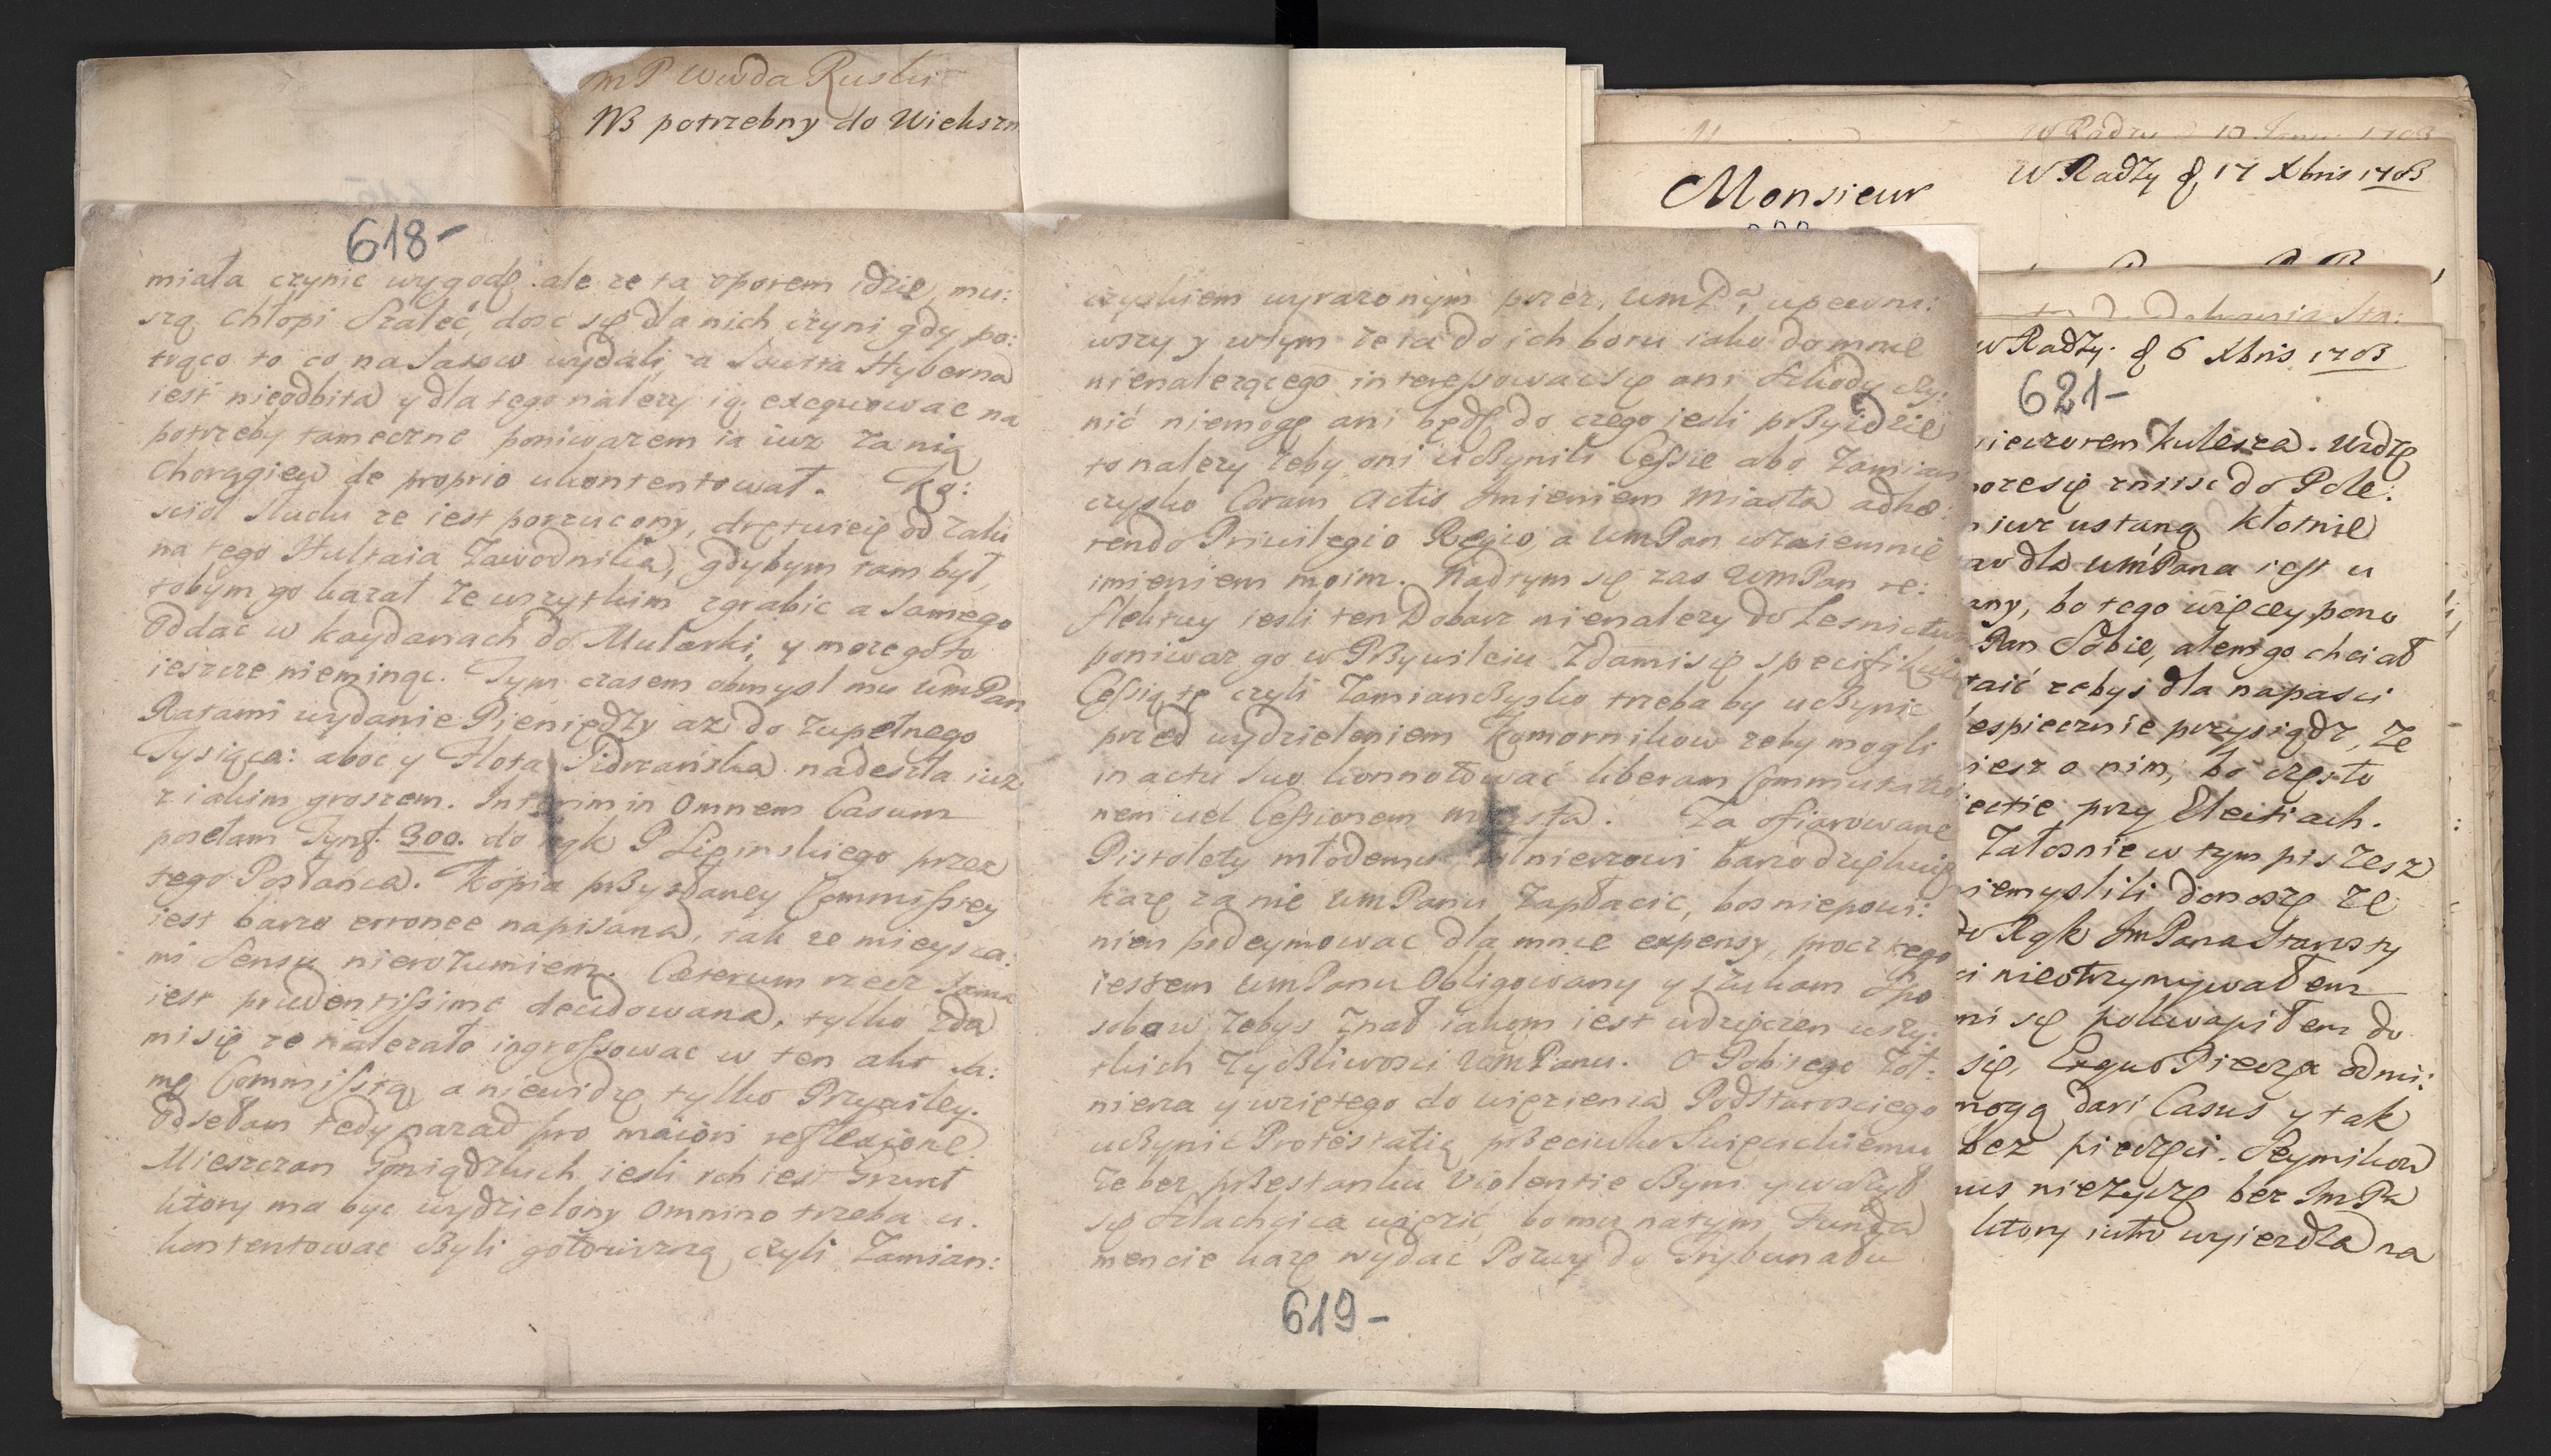 mP Wwda Ruski
NB potrzebny do Wieksz
618-
miała czynic wygodę. ale ze ta oporem idzie, mu:
szą Chłopi Szaleć, dosc się dla nich czyni gdy po:
trącą to co na Sasow wydali, a Suma Hyberna
iest nieodbita y dla tego należy ią exequowac na
potrzeby tameczne poniwazem ia iuz za nią
Chorągiew de proprio ukontentował. Ko:
scioł Studu ze iest porzucony, drętwieię od zalu
na tego Hultaia Zawodnika, gdybym tam był,
tobym go kazał ze wszytkim zgrabic a samego
Oddać w kaydanach do Mularki, y moze go to
ieszcze nieminąc. Tym czasem obmysl mu WmPan
Ratami wydanie Pieniędzy az do zupełnego
Tysiąca: aboc y Flota Tidrzańska nadeszła iuz
z iakim groszem. Interim in Omnem Casum
posełam Tynf. 300. do rąk P Lipinskiego przez
tego Posłańca. Kopia przysłaney Commissiey
iest barzo erronee napisana, tak ze mieysca:
mi Sensu nierozumiem. Cæterum rzecz sama
iest prudentissime decidowana, tylko zda
mi się ze nalezało ingrossowac w ten akt sa:
mę Commissią a niewidzę tylko Przywiley.
Odsełam tedy nazad pro maiori reflexione.
Mieszczan Goniądzkich iesli ich iest Grunt
ktory ma byc wydzielony Omnino trzeba u.
kontentowac czyli gotowizną czyli Zamian:
czyskiem wyrazonym przez WmPa, upewni:
wszy y w tym ze ia do ich boru iako do mnie
nienalezącego interessowac się ani szkody czy:
nić niemogę ani będę do czego iesli przyidzie
to nalezy zeby oni uczynili Cessie abo Zamian
czysko Coram Actis Imieniem Miasta adhæ:
rendo Priuilegio Regio, a WmPan wzaiemnie
imieniem moim. Nadtym się zas WmPan re:
flektuy iesli ten Dobarz nienalezy do Lesnictwa
poniwaz go w Przywileiu zda mi się specifikuią
Cessią tę czyli Zamianczysko trzeba by uczynic
przed wydzieleniem Komornikow zeby mogli
in actu suo konnotować liberam Commutatio
nem uel Cessionem miasta. Za ofiarowane
Pistolety młodemu zołnierzowi barzo dziękuię
każę za nie WmPanu Zapłacic, bos niepowi:
nien podeymowac dla mnie expensy, procz tego
iestem WmPanu Obligowany y szukam Spo
sobow, zebys znał iakom iest wdzięczen wszy:
tkich Zyczliwosci WmPanu. O Pobitego Zoł:
nierza y wziętego do więzienia Podstarosciego
uczynic Protestatią przeciwko Swięcickiemu
ze bez przestanku violentie czyni y wazył
się szlachcica więzić, bo ma natym Funda
mencie każę wydac Pozwy do Trybunału
619-
W Radzy d 17 Xbris 1703
Monsieur
w Radzy. d 6 Xbris 1703
621-
wieczorem Kulesza. Widzę
moze się zniisc do Pole:
iuz ustaną Kłotnie
dla WmPana iest u
ny, bo tego więcey pono
Pan Sobie, alem go chciał
taić zebys dla napasci
espiecznie przysiądz, Ze
iesz o nim, bo często
ectie przy Elektiach.
Załosnie w tym piszesz
niemyslili donoszę ze
do Rąk ImPana Starosty
ci nieotrzymywałem
ni się pokwapiłem do
się, Ergo Pieczęc odmi:
mogą dari Casus y tak
bez pieczęci. Seymikow
us nieżyczę bez ImPa
ktory iutro wyiezdza na